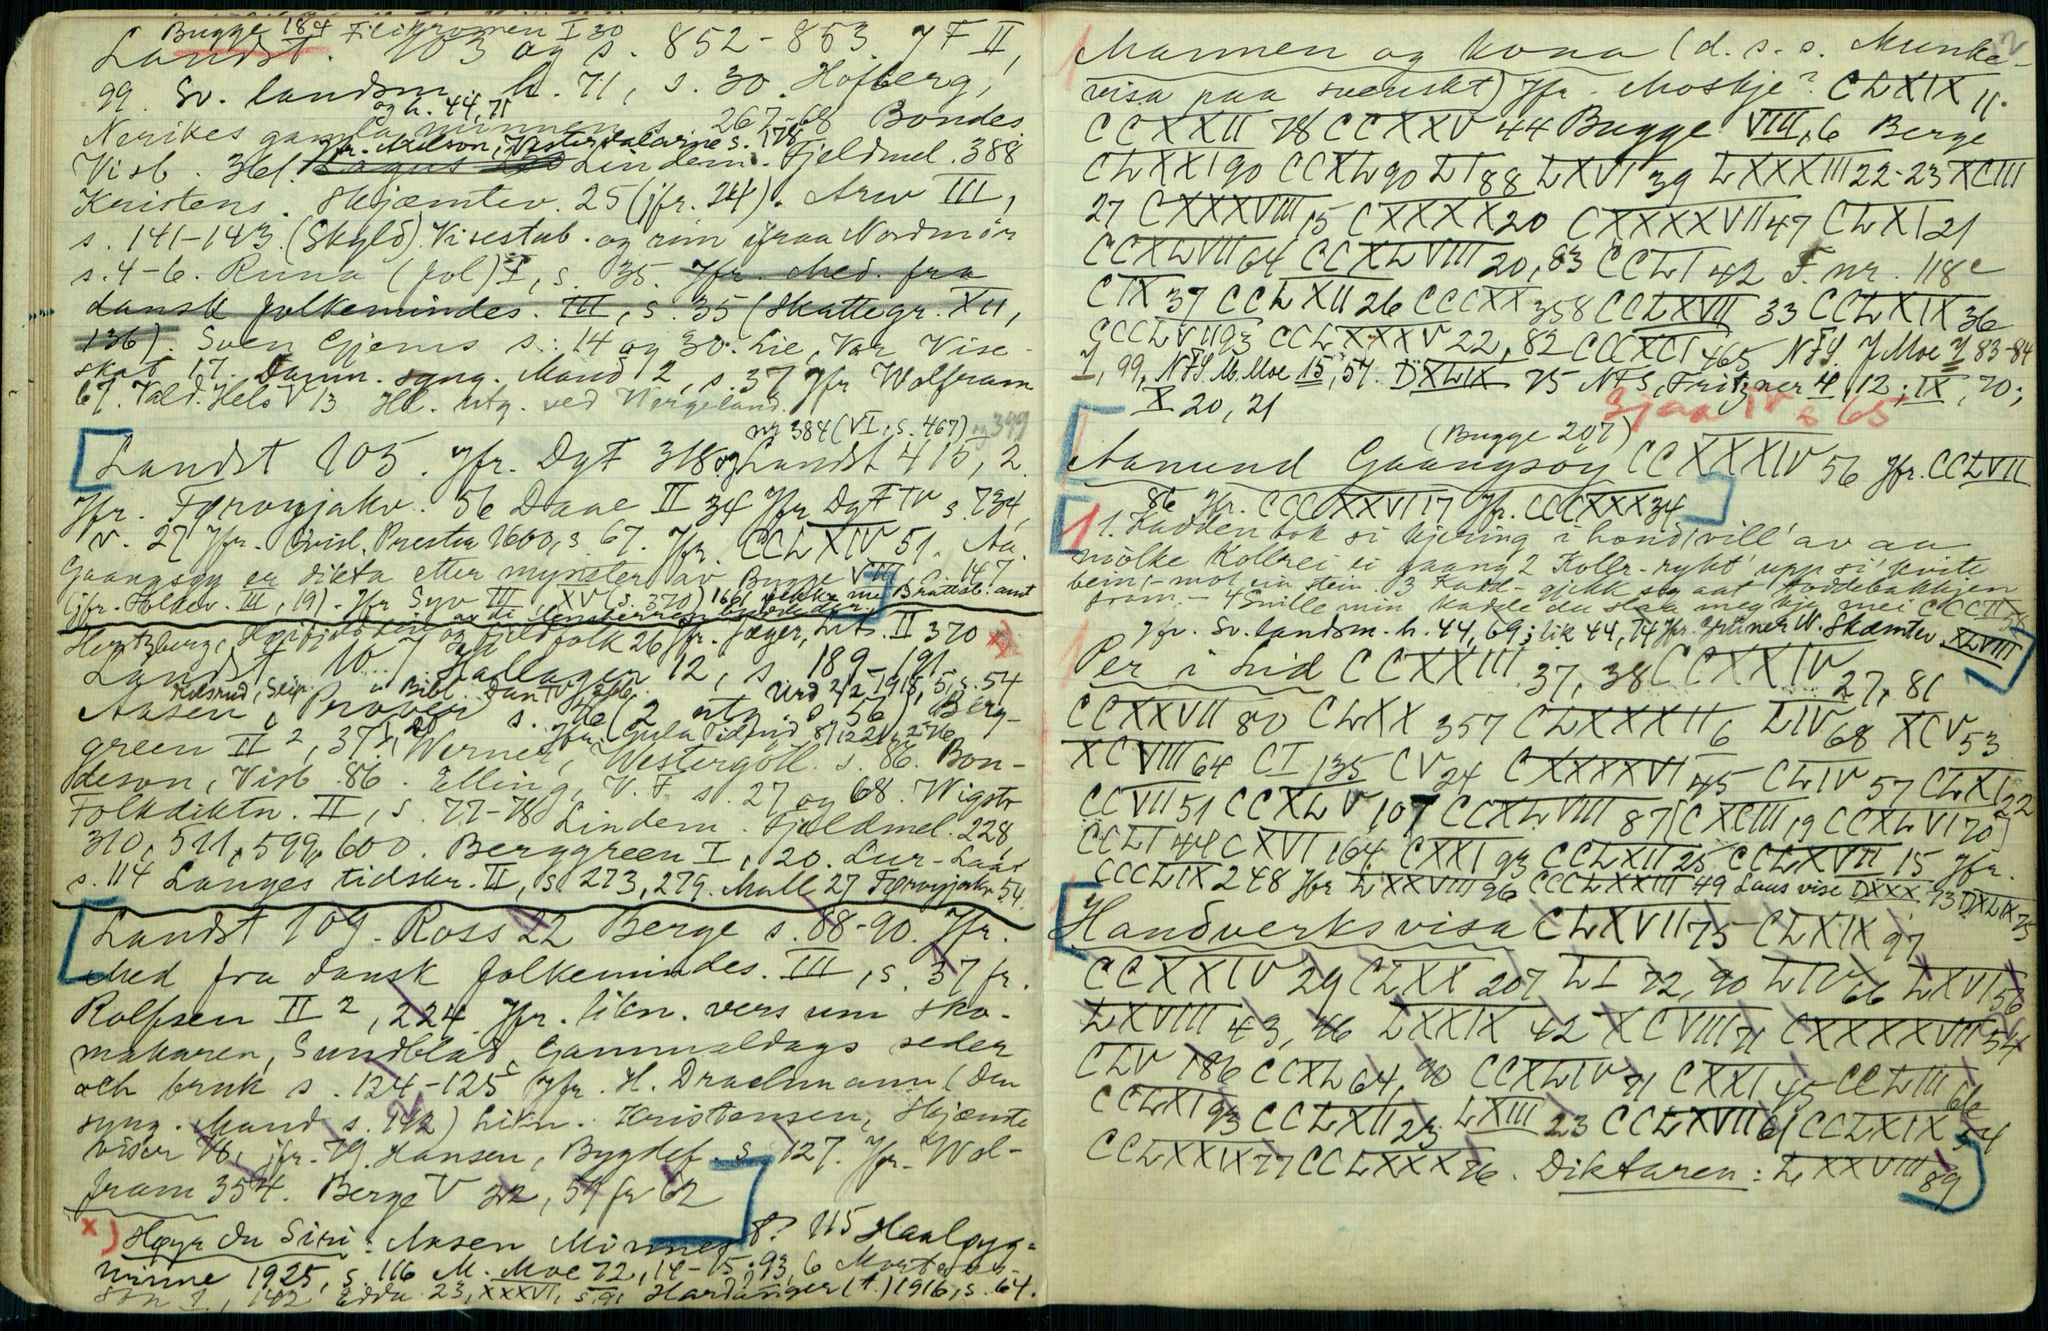 Bugge 184 Filikromen I 30
Landst. 103 og s. 852-853. JF II,
99. Sv. landsm. h. 71, s. 30. Hofberg,
og h. 44, 71
Nerikes gamla minnen s. 267-68 Bondes.
Jfr. Axelson, Vesterdalarne s. 178
Visb. 361. Lindem. Fjeldmel. 388
Kristens. Skjæmtev. 25 (jfr. 24). Arw III,
s. 141-143. (Skyld). Visestub. og rim ifraa Nordmør
s. 4-6. Runa (fol) I, s. 35. Jfr. Med. fra
dansk folkeminder. III, s. 35 (Skattegr. XII,
136). Sven Gjems s. 14 og 30. Lie, Vor Vise-
skat 17. Danm. syng. Mand 2, s. 37 Jfr Wolfram
67. Vald. Hels V 13 Hl. utg. ved Vergeland.
og 384 (VI, s. 467) og 399
Landst 105. Jfr. DgF 318 og Landst 415, 2.
Jfr. Færøyjakv. 56 Daae II 34 Jfr DgF IV s. 734,
v. 27 Jfr. Qvisl. Prester 1600, s. 67. Jfr. CCLXIV 51. Aa.
Gaangsøy er dikta etter mynster av Bugge VIII s. 147
(jfr. Holder. III, 19). Jfr Syv III, XV (s. 370) 1661
Hertzberg, og fjeldfolk 26 Jfr. Jæger, Lit. II 370 x)
Landst 107 Hallager 12, s. 189-191.
Aasen, Prøver s. 46 (2 utg. s. 56), Berg-
green II 2, 37, Werner, Westergötl. s. 86. Bon-
deson, Visb. 86. Elling, V. F. s. 27 og 68. Wigstr
Folkdiktn. II, s. 77-78 Lindem. Fjeldmel. 228,
310, 511, 599, 600. Berggreen I, 120. Lur-Laat
s. 114 Langes tidskr. II, s. 273, 279. Malle 27 Færøyjakv 54.
Landst 109. Ross 22 Berge s. 88-90. Jfr.
Med fra dansk folkeminder. III, s. 37 fr.
Rolfsen II 2, 224. Jfr. likn. vers um sko-
makaren, Sundblad Gammaldags seder
och bruk s. 124-125 Jfr. H. Drachmann (Den
syng. Mand s. 142) Likn. Kristensen, Skjæmte
viser 18, jfr. 79. Hansen, Bygdef. s. 127. Jfr. Wol-
fram 354. Berge V 22, 59 fr 62
x) Høyr du Siri: Aasen Minnes 115 Haaløyg-
minne 1925, s. 116 M. Moe 72, 14-15, 93, 6 Morten-
son I, 142 Edda 23, XXXVI, s. 91 Hardanger (t.) 1916, s. 64.
Mannen og kona (d. s. s. Munke-
visa paa svenskt) Jfr. Moskje? CLXIX 11.
CCXXII 78 CCXXV 44 Bugge VIII, 6 Berge
CLXXI 90 CCXL 90 LI 88 LXVI 39 LXXXIII 22-23 XCIII
27 CXXXVIII 15 CXXXX 20 CXXXXVII 47 CLXI 21
CCXLVII 64 CCXLVIII 20, 83 CCLI 42 F. nr. 118 c
CIX 37 CCLXII 26 CCCXX 358 CCLXVII 33 CCLXIX 36
CCCLVII 93 CCLXXXV 22, 82 CCCXCI 465 NFS. J Moe I 83-84
I, 99, NFS M. Moe 15, 57. DXLIX 75 NFS, Fritzner 4, 12; IX, 70;
X 20, 21
Gjaa IV s 65
(Bugge 207)
Aamund Gaangsøy CCXXXIV 56 Jfr. CCLVII
86 Jfr. CCCXXVI 17 Jfr. CCCXXX 34
1. Fadden tok si kjering i hond, vill' av aa
mølke Kollrei ei gaang 2 Kollr- rykt' upp si kvite
bein,- mot ein stein 3 Fadd- gjekk seg aat stoddebakkjen
fram- 4 Snille min kadde du slaa meg kje mei CCCII 58
Jfr. Sv. landsm. h. 44, 69; lik 44, 74 Jfr. Grüner N. Skæmtev XLVIII
Per i Lid CCXXIII 37, 38 CCXXIV 27, 81
CCXXVII 80 CLXX 357 CLXXXII 6 LIV 68 XCV 53
XCVIII 64 CI 135 CV 24 CXXXXVI 45 CLIV 57 CLXI 22
CCVII 51 CCXLV 107 CCXLVIII 87 [CXCIII 19 CCXLVI 70]
CCLI 44 CXVI 164 CXXI 93 CCLXII 25 CCLXVII 15 Jfr.
CCCLIX 248 Jfr LXXVIII 96 CCCLXXIII 49 Laus vise DXXX 93 DXLIX 75
Handverksvisa CLXVII 75 CLXIX 97
CCXXIV 29 CLXX 207 LI 72, 90 LIV 66 LXVI 56
LXVIII 43, 46 LXXIX 42 XCVIII 71 CXXXXVII 54
CLV 186 CCXL 64, 90 CCXLIV 71 CXXI 45 CCLIII 66
CCLXI 93 CCLXII 23 LXIII 23 CCLXVII 61 CCLXIX 54
CCLXXIX 77 CCLXXX 76. Diktaren: LXXVIII 89